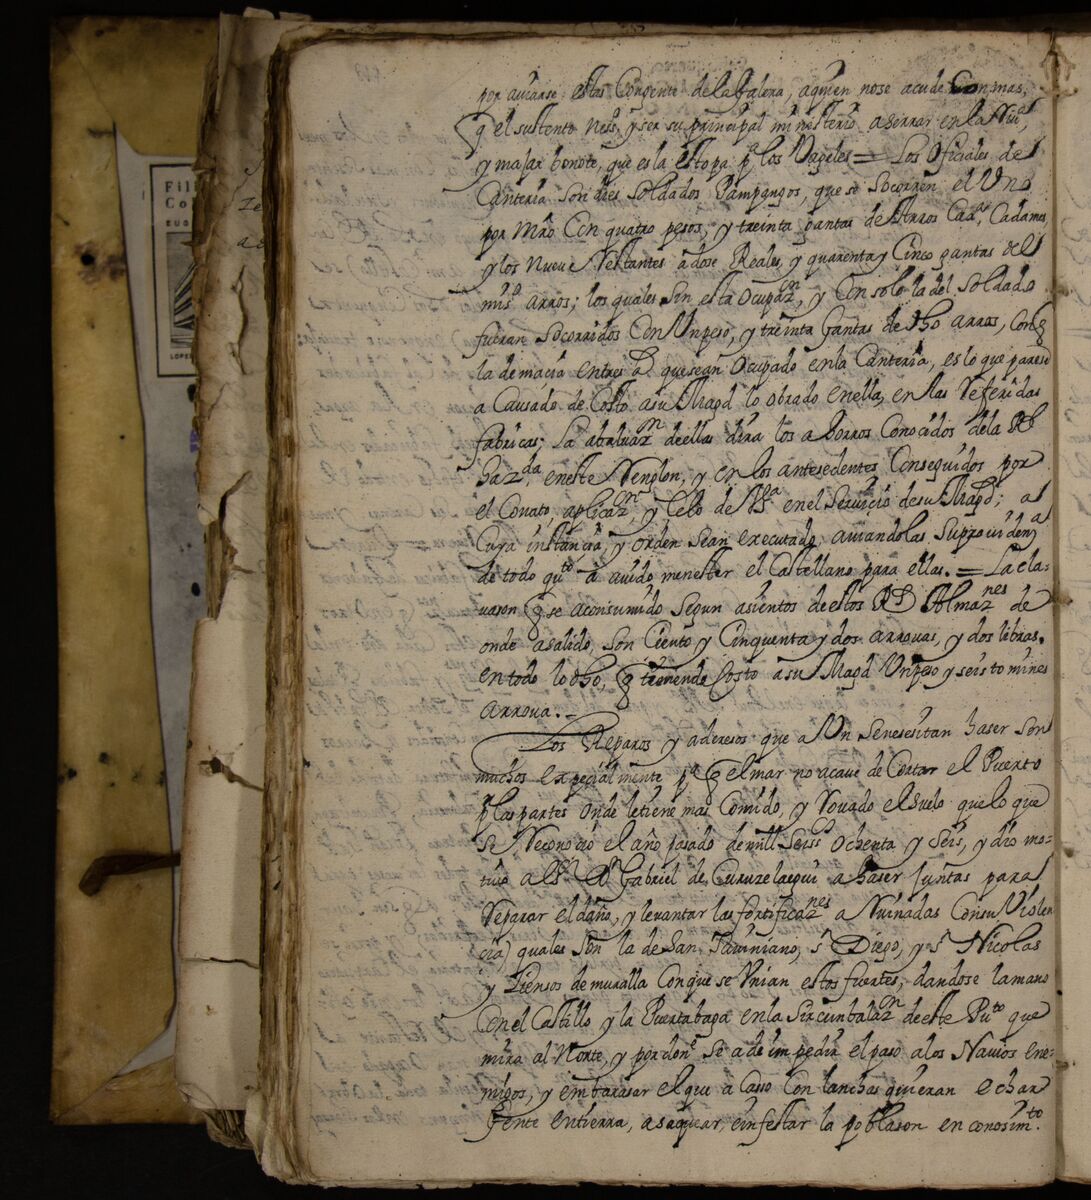 por auiarse estas Congente de la Galera, aquien nose acude Con mas,
q̃ el sustento Ness.o y ser su principal ministerio aserrar en la
y majar bonote, que es la estopa p.a los Vageles = Los Oficiales de
Canteria son dies soldados Pampangos, que se Socorren el Vno
por Mro Con quatro pesos, y treinta gantas de Arros Cada mes,
y los Nueue Restantes adose Reales, y quarenta y Cinco gantas del
mis.o arros; los quales sin esta Ocupaz.n, y Con solo la del Soldado
fueran Socorridos Con Vn peso, y treinta Gantas de dho arros, Conq̃
la demacia entres a.s que sean Ocupado enla Canteria, es lo que parese
a Causado de Costo asu Magd lo obrado enella, en las Referidas
fabricas; La abaluaz.n deellas dira los aorros Conocidos dela Rl
Haz.da, eneste Renglon, y en los antesedentes Conseguidos por
el Conato, aplicaz.on, y Celo de VS.a en el Seruicio desu Magd; a
Cuya instancia, y orden sean executado, auiandolas Suprouiden.a
de todo q.to a auido menester el Castellano para ellas. = La cla-
uason q̃ se aconsumido segun asientos deestos Rs Almaz.nes de
onde asalido, son Ciento y Cinquenta y dos arrouas, y dos libras,
en todo lo dho, q̃ tiene de Costo a su Magd Vn peso y seis tomines
arroua. -
Los Reparos y aderesos que aVn senesesitan haser son
muchos expecialmente p.a q̃ el mar no acaue de Cortar el Puerto
p.r las partes onde le tiene mas Comido, y Rouado el suelo que lo que
se Reconocio el año pasado de mill Seiss.os Ochenta y Seis, y dio mo-
tiuo al S.r Dn Gabriel de Curuzelaegui a haser Juntas para
Reparar el daño, y leuantar las fortificaz.nes aRuinadas Consu Violen
cia) quales son la de San Sauiniano, s.n Diego, y s.n Nicolas
y Liensos de muralla Conque se Vnian estos fuertes, dandose la mano
Con el Castillo y la Puertabaga en la Sircunbalaz.on deeste Pu.to que
mira al Norte, y por don.e Se a de impedir el paso a los Nauios ene-
migos, y embarasar el que a Casso Con lanchas quieran echar
Jente entierra, asaquear, einfestar la poblason en conosim.to